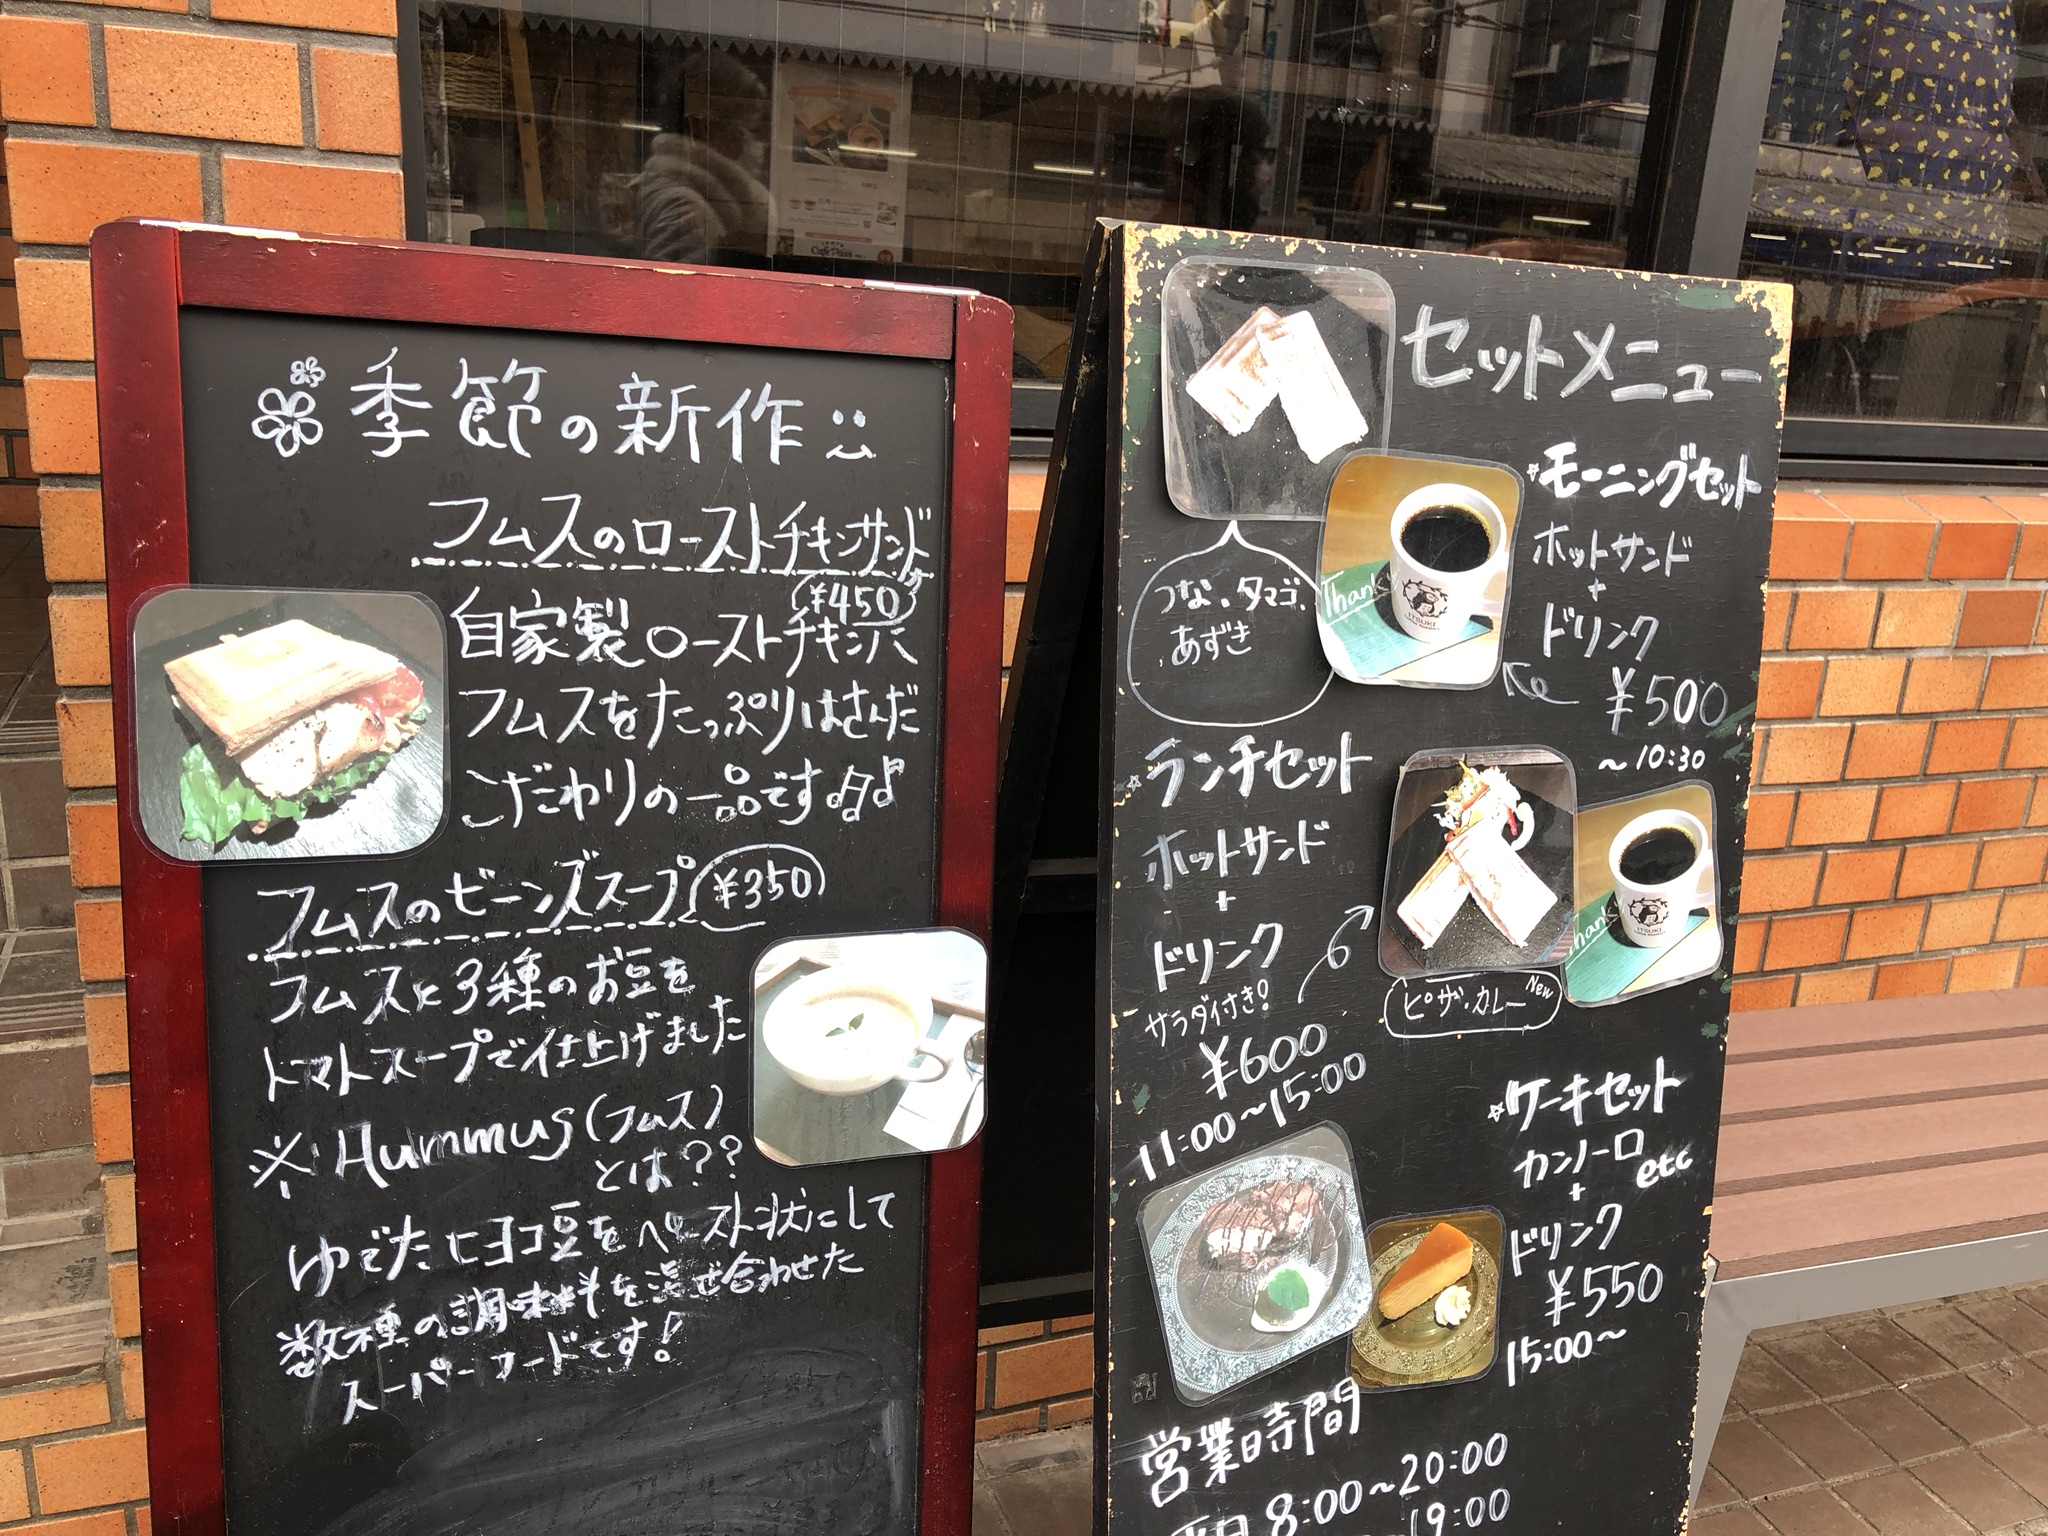 季節の新作
フムスのローストチキンサンド
¥450
自家製ローストチキンに
フムスをたっぷりはさんだ
こだわりの一品です♫♪
フムスのビーンズスープ ¥350
フムスに3種のお豆を
トマトスープで仕上げました
※Hummus(フムス)
とは??
ゆでたヒヨコ豆をペースト状にして
数種の調味料を混ぜ合わせた
スーパーフードです!
セットメニュー
☆モーニングセット
ホットサンド
+
ドリンク
¥500
~10:30
つな、タマゴ、
あずき
Thank
ITSUKI
☆ランチセット
ホットサンド
+
ドリンク
サラダ付き!
¥600
11:00~15:00
ピザ・カレー New
Thank
ITSUKI
☆ケーキセット
カンノーロ
etc
+
ドリンク
¥550
15:00~
営業時間
平日 8:00~20:00
19:00